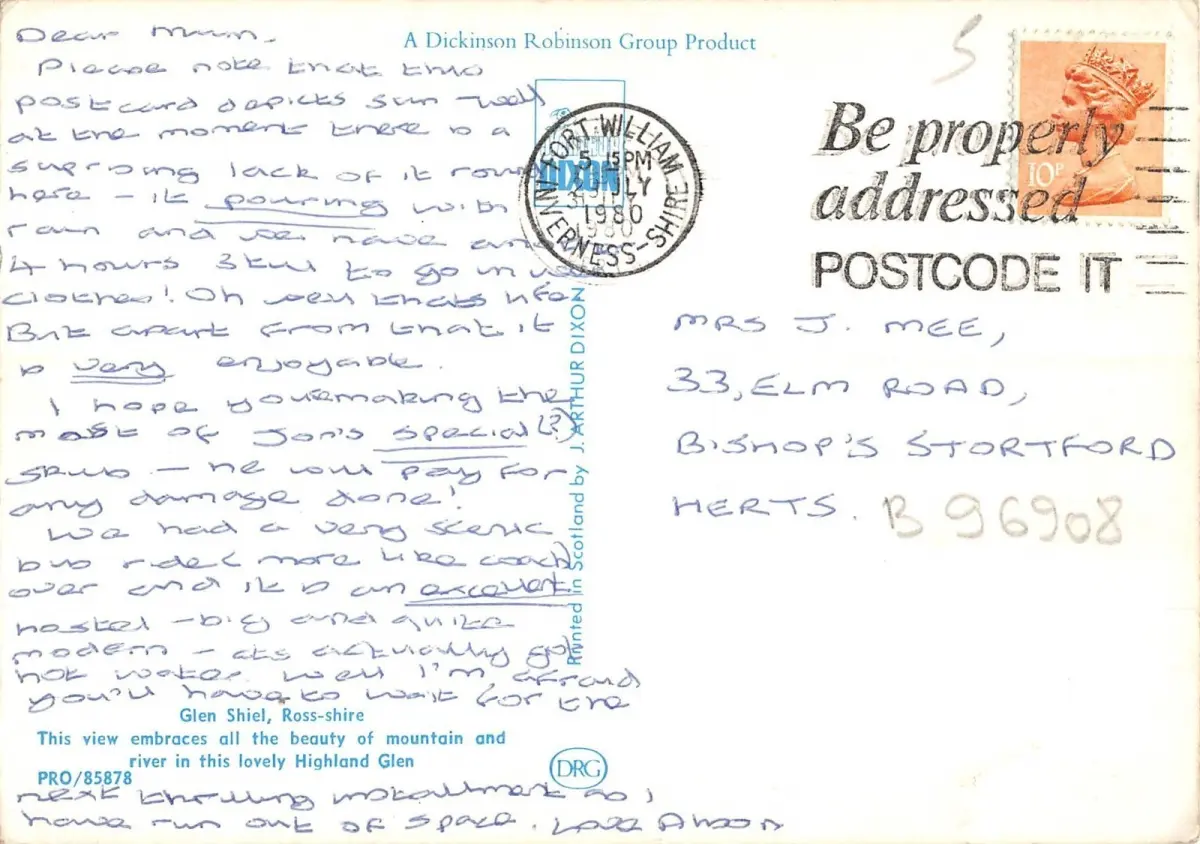 A Dickinson Robinson Group Product
Dear Mum,
Please note that this
postcard depicts sun - well
at the moment there is a
suprising lack of it round
here - it pouring with
rain and we have
4 hours still to go in
clothes! Oh well thats life
But apart from that it
is very enjoyable.
I hope you're making the
most of Jon's special(?)
- he will pay for
any damage done!
We had a very scenic
bus ride (more like coach)
over and it is an excellent
hostel - big and quite
modern - its actually got
hot water. Well I'm afraid
you'll have to wait for the
Glen Shiel, Ross-shire
This view embraces all the beauty of mountain and
river in this lovely Highland Glen
PRO/85878
next thrilling installment as I
have run out of space. Love Alison
DRG
DIXON
Printed in Scotland by J. ARTHUR DIXON
FORT WILLIAM
INVERNESS-SHIRE
5 15PM
JULY
1980
Be properly
addressed
POSTCODE IT
10P
5
MRS J. MEE,
33, ELM ROAD,
BISHOP'S STORTFORD
HERTS. B 96908